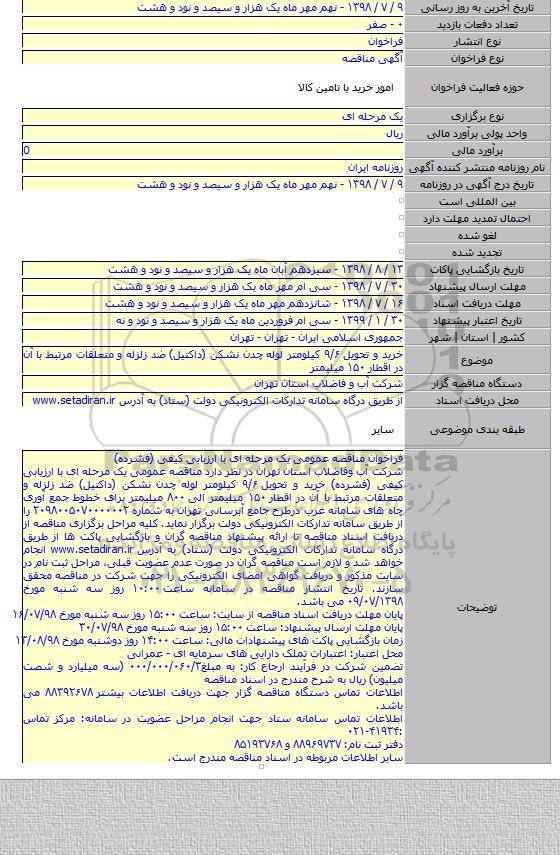 تاریخ آخرین به روز رسانی ۹ / ۷ / ۱۳۹۸ - نهم مهر ماه یک هزار و سیصد و نود و هشت
تعداد دفعات بازدید ۰ - صفر
نوع انتشار فراخوان
نوع فراخوان آگهی مناقصه
حوزه فعالیت فراخوان امور خرید یا تامین کالا
نوع برگزاری یک مرحله ای
واحد پولی برآورد مالی ریال
برآورد مالی 0
نام روزنامه منتشر کننده آگهی روزنامه ایران
تاریخ درج آگهی در روزنامه ۹ / ۷ / ۱۳۹۸ - نهم مهر ماه یک هزار و سیصد و نود و هشت
بین المللی است
احتمال تمدید مهلت دارد
لغو شده
تجدید شده
تاریخ بازگشایی پاکات ۱۳ / ۸ / ۱۳۹۸ - سیزدهم آبان ماه یک هزار و سیصد و نود و هشت
مهلت ارسال پیشنهاد ۳۰ / ۷ / ۱۳۹۸ - سی ام مهر ماه یک هزار و سیصد و نود و هشت
مهلت دریافت اسناد ۱۶ / ۷ / ۱۳۹۸ - شانزدهم مهر ماه یک هزار و سیصد و نود و هشت
تاریخ اعتبار پیشنهاد ۳۰ / ۱ / ۱۳۹۹ - سی ام فروردین ماه یک هزار و سیصد و نود و نه
کشور | استان | شهر جمهوری اسلامی ایران - تهران - تهران
موضوع خرید و تحویل ۹/۶ کیلومتر لوله چدن نشکن (داکتیل) ضد زلزله و متعلقات مرتبط با آن
در اقطار ۱۵۰ میلیمتر
دستگاه مناقصه گزار شرکت آب و فاضلاب استان تهران
محل دریافت اسناد از طریق درگاه سامانه تدارکات الکترونیکی دولت (ستاد) به آدرس www.setadiran.ir
طبقه بندی موضوعی سایر
توضیحات
فراخوان مناقصه عمومی یک مرحله ای با ارزیابی کیفی (فشرده)
شرکت آب وفاضلاب استان تهران در نظر دارد مناقصه عمومی یک مرحله ای با ارزیابی
کیفی (فشرده) خرید و تحویل ۹/۶ کیلومتر لوله چدن نشکن (داکتیل) ضد زلزله و
متعلقات مرتبط با آن در اقطار ۱۵۰ میلیمتر الی ۸۰۰ میلیمتر برای خطوط جمع آوری
چاه های سامانه غرب درطرح جامع آبرسانی تهران به شماره ۲۰۹۸۰۰۵۰۷۰۰۰۰۰۰۲ را
از طریق سامانه تدارکات الکترونیکی دولت برگزار نماید. کلیه مراحل برگزاری مناقصه از
دریافت اسناد مناقصه تا ارائه پیشنهاد مناقصه گران و بازگشایی پاکت ها از طریق
درگاه سامانه تدارکات الکترونیکی دولت (ستاد) به آدرس www.setadiran.ir انجام
خواهد شد و لازم است مناقصه گران در صورت عدم عضویت قبلی، مراحل ثبت نام در
سایت مذکور و دریافت گواهی امضای الکترونیکی را جهت شرکت در مناقصه محقق
سازند. تاریخ انتشار مناقصه در سامانه ساعت ۱۰:۰۰ روز سه شنبه مورخ
۰۹/۰۷/۱۳۹۸ می باشد.
پایان مهلت دریافت اسناد مناقصه از سایت: ساعت ۱۵:۰۰ روز سه شنبه مورخ ۱۶/۰۷/۹۸
پایان مهلت ارسال پیشنهاد: ساعت ۱۵:۰۰ روز سه شنبه مورخ ۳۰/۰۷/۹۸
زمان بازگشایی پاکت های پیشنهادات مالی: ساعت ۱۴:۰۰ روز دوشنبه مورخ ۱۳/۰۸/۹۸
محل اعتبار: اعتبارات تملک دارایی های سرمایه ای - عمرانی
تضمین شرکت در فرآیند ارجاع کار: به مبلغ۰۰۰/۰۰۰/۰۶۰/۳ (سه میلیارد و شصت
میلیون) ریال به شرح مندرج در اسناد مناقصه
اطلاعات تماس دستگاه مناقصه گزار جهت دریافت اطلاعات بیشتر ۸۸۳۹۲۶۷۸ می
باشد.
اطلاعات تماس سامانه ستاد جهت انجام مراحل عضویت در سامانه: مرکز تماس
:۰۲۱-۴۱۹۳۴
دفتر ثبت نام: ۸۸۹۶۹۷۳۷ و ۸۵۱۹۳۷۶۸
سایر اطلاعات مربوطه در اسناد مناقصه مندرج است.